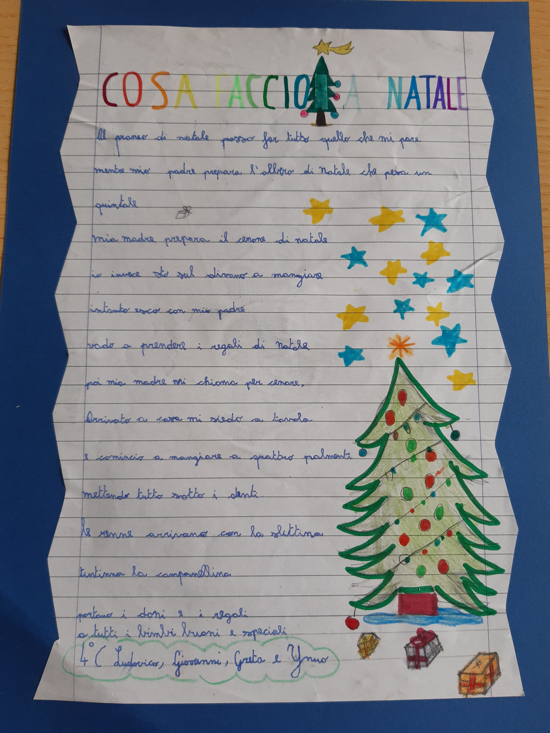 COSA FACCIO A NATALE
Al pranzo di natale posso far tutto quello che mi pare
mentre mio padre prepara l'albero di Natale che pesa un
quintale
mia madre prepara il cenone di natale
io invece sto sul divano a mangiare
intanto esco con mio padre
vado a prendere i regali di Natale
poi mia madre mi chiama per cenare,
Arrivato a casa mi siedo a tavola
e comincio a mangiare a quattro palmenti
mettendo tutto sotto i denti
Le renne arrivano con la slittina
tintinna la campanellina
portano i doni e i regali
a tutti i bimbi buoni e speciali
4°C Ludovico, Giovanni, Greta e